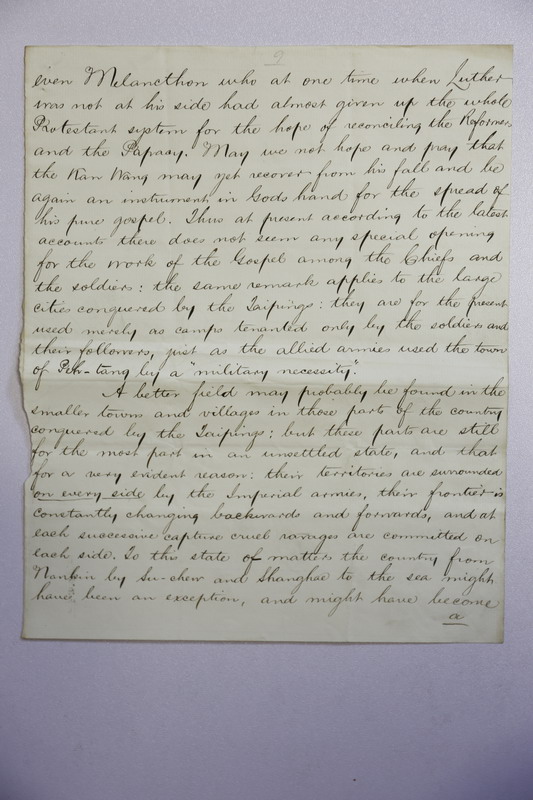 9
even Melancthon who at one time when Luther
was not at his side had almost given up the whole
Protestant system for the hope of reconciling the Reformers
and the Papacy. May we not hope and pray that
the Kan Wang may yet recover from his fall and be
again an instrument in Gods hand for the spread of
his pure gospel. Thus at present according to the latest
accounts there does not seem any special opening
for the work of the Gospel among the Chiefs and
the soldiers: the same remark applies to the large
cities conquered by the Taipings: they are for the present
used merely as camps tenanted only by the soldiers and
their followers, just as the allied armies used the town
of Peh-tang by a "military necessity".
A better field may probably be found in the
smaller towns and villages in those part of the country
conquered by the Taipings; but these parts are still
for the most part in an unsettled state, and that
for a very evident reason: their territories are surrounded
on every side by the Imperial armies, their frontier is
constantly changing backwards and forwards, and at
each successive capture cruel ravages are committed on
each side. To this state of matters the country from
Nankin by Su-chew and Shanghae to the sea might
have been an exception, and might have become
a